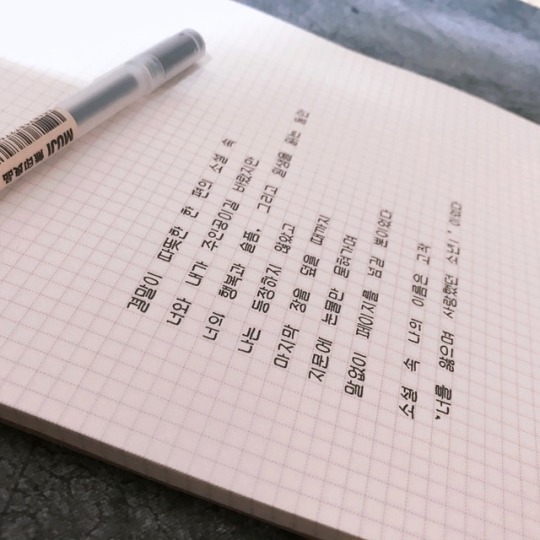 결말이 따뜻한 한 편의 소설 속
너와 내가 주인공이길 바랬지만
너의 행복과 슬픔, 그리고 일생을 읽는 동안
나는 등장하지 않았고
마지막 장을 덮을 때까지
지문에 눈물만 묻혀가며
말없이 페이지를 넘길 뿐이었다
소설 속 나의 이름은 고작
'너를 앓으며 사랑했던 소년1' 이었다
MUJI 無印良品